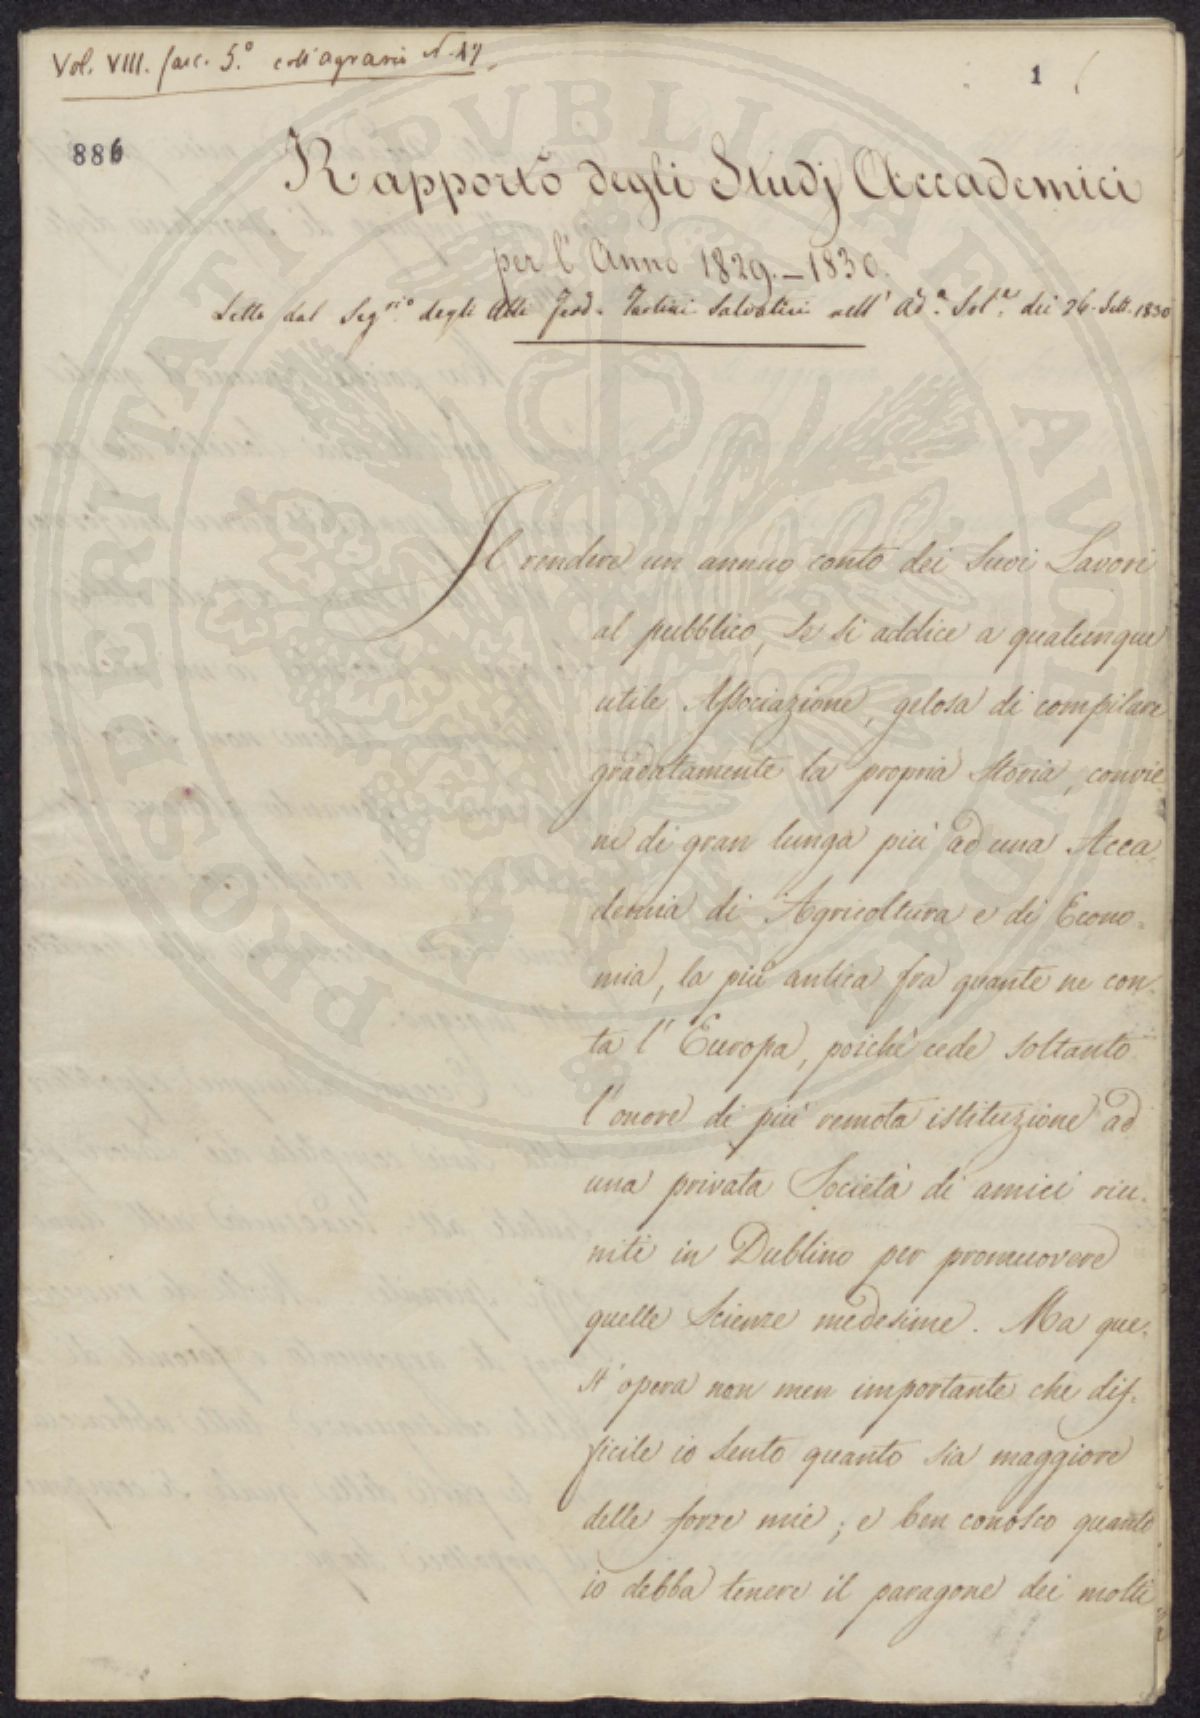 Vol. VIII. fasc. 5.° coll' agrario N. 47
1
886
Rapporto degli Studj Accademici
per l'Anno 1829.-1830.
Letto dal Seg.rio degli Atti Ferd. Tartini Salvatici nell' Ad.a Sol.e dei 26. Sett. 1830
Il rendere un annuo conto dei suoi Lavori
al pubblico, se si addice a qualunque
utile Associazione, gelosa di compilare
gradatamente la propria Storia, convie
ne di gran lunga più ad una Acca
demia di Agricoltura e di Econo-
mia, la più antica fra quante ne con-
ta l'Europa, poichè cede soltanto
l'onore di più remota istituzione ad
una privata Società di amici riu-
niti in Dublino per promuovere
quelle Scienze medesime. Ma que-
st' opera non men importante che dif-
ficile io sento quanto sia maggiore
delle forze mie; e ben conosco quanto
io debba tenere il paragone dei molti
PROSPERITATI PUBLICAE AUGENDAE